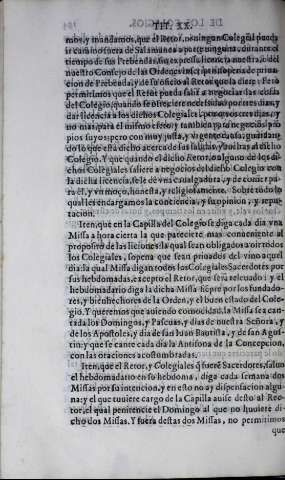 TIT. XX.
mos, y mandamos, que el Retor, ni ningun Colegial pueda
ir camino fuera de Salamanca a parte ninguna, durante el
tiempo de sus Prebendas, sin expressa licencia nuestra, o del
nuestro Consejo de las Ordenes,
cion de Prebenda, y de suspensiō al Retor que la diere. Pero
permitimos que el Retor pueda salir a negociar las cosas
del Colegio, quando se ofreciere necessidad por tres dias, y
dar licencia a los dichos Colegiales por otros tres dias, y
no mas, para el mismo efeto, y tambien para negocios pro
pios suyos: pero con muy justa, y vrgente causa, guardan
do lo que està dicho acerca de sus salidas, y bueltas al dicho
Colegio. Y que quando el dicho Retor, o alguno de los di-
chos Colegiales saliere a negocios del dicho Colegio con
la dicha licencia, se le dè vna caualgadura, y de comer pa-
ra èl, y vn moço, honesta, y religiosamente. Sobre todo lo
qual les encargamos la conciencia, y su opinion, y repu-
tacion.
Iten, que en la Capilla del Colegio se diga cada dia vna
Missa a hora cierta que pareciere mas conueniente al
proposito de las liciones: la qual sean obligados a oir todos
los Colegiales, sopena que sean priuados del vino aquel
dia: la qual Missa digan todos los Colegiales Sacerdotes por
sus hebdomadas, excepto el Retor, que serà reseruado: y el
hebdomadario diga la dicha Missa siēpre por los fundado-
res, y bienhechores de la Orden, y el buen estado del Cole-
gio. Y queremos que auiendo comodidad, la Missa sea can-
tada los Domingos, y Pascuas, y dias de nuestra Señora, y
de los Apostoles, y dia de san Iuan Bautista, y de san Agus-
tin: y que se cante cada dia la Antifona de la Concepcion,
con las oraciones acostumbradas.
Iten, que el Retor, y Colegiales q̃ fuerē Sacerdotes, saluo
el hebdomadario en su hebdoma, diga cada semana dos
Missas por su intencion, y en esto no ay dispensacion algu-
na: y el que tuuiere cargo de la Capilla auise desto al Re-
tor, el qual penitencie el Domingo al que no huuiere di-
cho dos Missas. Y fuera destas dos Missas, no permitimos
que